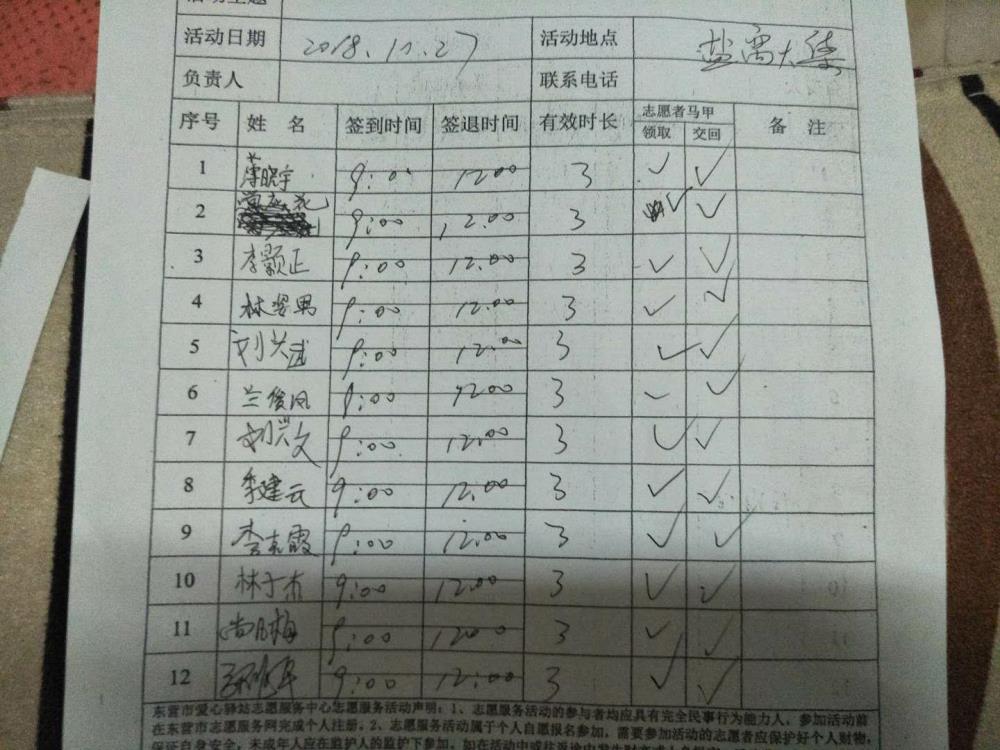 活动主题
活动日期 2018.10.27 活动地点 盐窝大集
负责人 联系电话
序号 姓 名 签到时间 签退时间 有效时长 志愿者马甲 备 注
领取 交回
1 薄晓宇 9:00 12:00 3 ✓ ✓
2 9:00 12:00 3 ✓ ✓
3 李颢正 9:00 12:00 3 ✓ ✓
4 林姿男 9:00 12:00 3 ✓ ✓
5 刘兴武 9:00 12:00 3 ✓ ✓
6 兰俊凤 9:00 12:00 3 ✓ ✓
7 刘兴文 9:00 12:00 3 ✓ ✓
8 季建云 9:00 12:00 3 ✓ ✓
9 李克霞 9:00 12:00 3 ✓ ✓
10 林于杰 9:00 12:00 3 ✓ ✓
11 9:00 12:00 3 ✓ ✓
12 9:00 12:00 3 ✓ ✓
东营市爱心驿站志愿服务中心志愿服务活动声明：1、志愿服务活动的参与者均应具有完全民事行为能力人，参加活动前
在东营市志愿服务网完成个人注册。2、志愿服务活动属于个人自愿报名参加，需要参加活动的志愿者应保护好个人财物，
保证自身安全，未成年人应在监护人的监护下参加，如在活动中或往返途中发生财产或人身